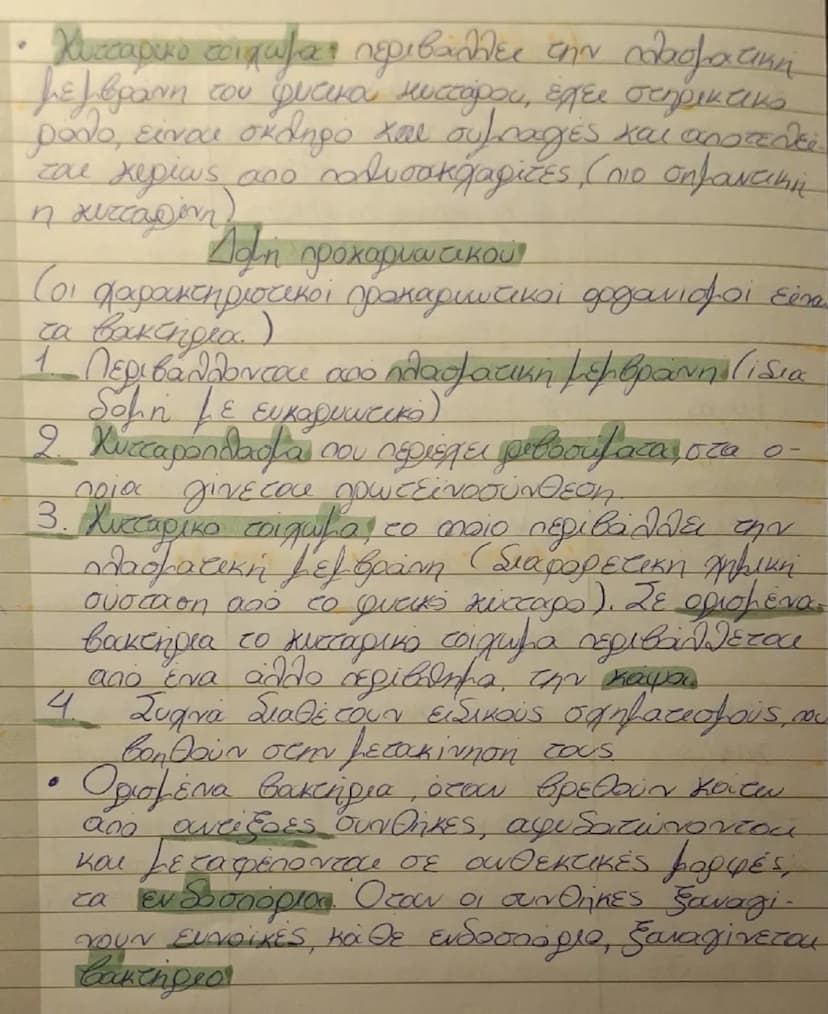 • Κυτταρικό τοίχωμα: περιβάλλει την πλασματική
μεμβράνη του φυτικού κυττάρου, έχει στηρικτικό
ρόλο, είναι σκληρό και συμπαγές και αποτελεί-
ται κυρίως από πολυσακχαρίτες, (πιο σημαντική
η κυτταρίνη)
Δομή προκαρυωτικού
(οι χαρακτηριστικοί προκαρυωτικοί οργανισμοί είναι
τα βακτήρια.)
1. Περιβάλλονται από πλασματική μεμβράνη (ίδια
δομή με ευκαρυωτικό)
2. Κυτταρόπλασμα που περιέχει ριβοσώματα, στα ο-
ποία γίνεται πρωτεϊνοσύνθεση.
3. Κυτταρικό τοίχωμα, το οποίο περιβάλλει την
πλασματική μεμβράνη (διαφορετική χημική
σύσταση από το φυτικό κύτταρο). Σε ορισμένα
βακτήρια το κυτταρικό τοίχωμα περιβάλλεται
από ένα άλλο περίβλημα, την κάψα.
4. Συχνά διαθέτουν ειδικούς σχηματισμούς, που
βοηθούν στην μετακίνηση τους.
• Ορισμένα βακτήρια, όταν βρεθούν κάτω
από αντίξοες συνθήκες, αφυδατώνονται
και μετατρέπονται σε ανθεκτικές μορφές,
τα ενδοσπόρια. Όταν οι συνθήκες ξαναγί-
νουν ευνοϊκές, κάθε ενδοσπόριο, ξαναγίνεται
βακτήριο